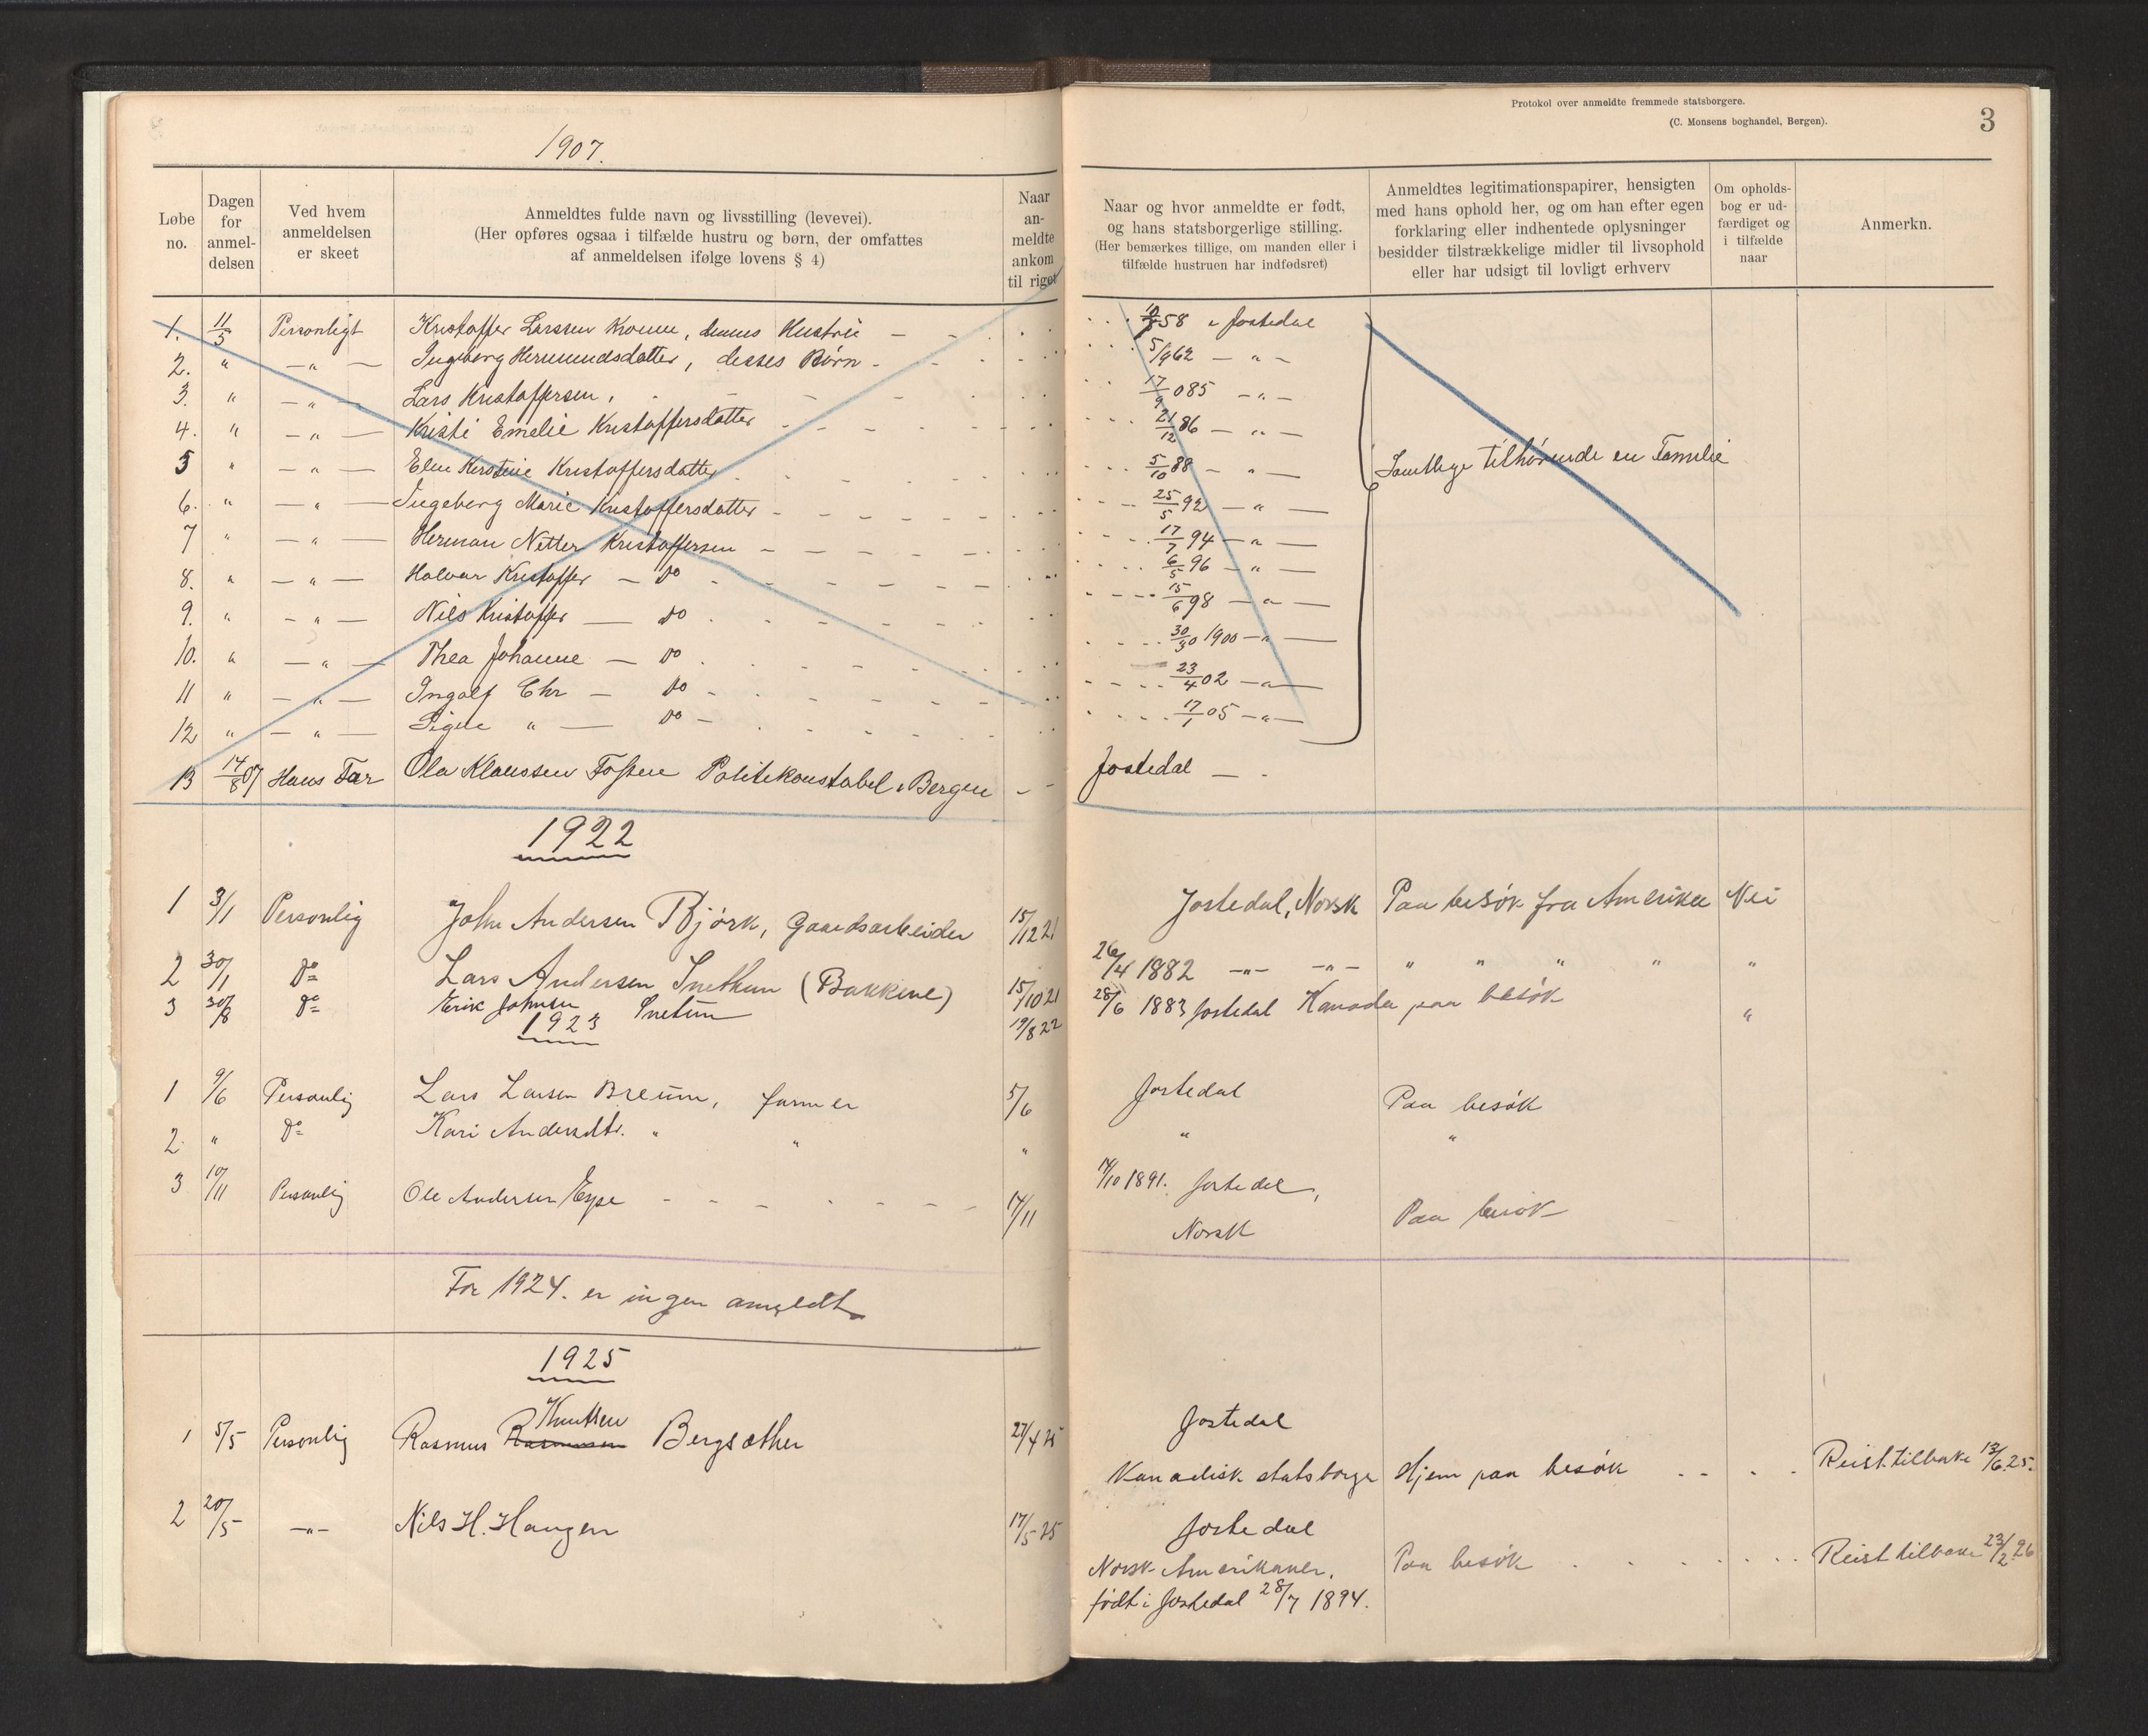 1907.
Løbe no.
Dagen for anmel-delsen
Ved hvem anmeldelsen er skeet
Anmeldtes fulde navn og livsstilling (levevei).
(Her opføres ogsaa i tilfælde hustru og børn, der omfattes
af anmeldelsen ifølge lovens § 4)
Naar an-meldte ankom til riget
1. 11/3 Personligt Kristoffer Larssen Kronen, dennes Hustrue
2. " — " — Ingeborg Hermundsdatter, disses Børn
3. " — " — Lars Kristoffersen,
4. " — " — Kristi Emelie Kristoffersdatter
5 " — " — Elen Kirstine Kristoffersdatter
6. " — " — Ingeborg Marie Kristoffersdatter
7 " — " — Herman Netter Kristoffersen
8. " — " — Halvar Kristoffer — do
9. " — " — Nils Kristoffer — do
10. " — " — Thea Johanne — do
11 " — " — Ingolf Chr — do
12 " — " — Signe " — do
13 14/8 07 Hans Far Ola Klaussen Fossen Politikonstabel i Bergen
1922
1 3/1 Personlig John Andersen Bjørk, Gaardsarbeider 15/12 21
2 30/1 Do Lars Andersen Snethun (Bakkene) 15/10 21
3 30/8 Do Erik Johnsen Snetun 19/8 22
1923
1 9/6 Personlig Lars Larsen Breum, farmer 5/6
2 " Do Kari Andersdtr. " " "
3 10/11 Personlig Ole Andersen Espe 17/11
For 1924. er ingen anmeldt
1925
Knutsen
1 5/5 Personlig Rasmus Rasmussen Bergsæther 27/4 25
2 20/5 — " — Nils H. Haugen 17/5 25
Protokol over anmeldte fremmede statsborgere.
(C. Monsens boghandel, Bergen).
3
Naar og hvor anmeldte er født,
og hans statsborgerlige stilling.
(Her bemærkes tillige, om manden eller i
tilfælde hustruen har indfødsret)
Anmeldtes legitimationspapirer, hensigten
med hans ophold her, og om han efter egen
forklaring eller indhentede oplysninger
besidder tilstrækkelige midler til livsophold
eller har udsigt til lovligt erhverv
Om opholds-bog er ud-færdiget og i tilfælde naar
Anmerkn.
58 i Jostedal
5/9 62 — " —
17/9 085 — " —
21/12 86 — " —
5/10 88 — " —
Samtlige tilhørende en Familie
25/5 92 — " —
17/7 94 — " —
6/5 96 — " —
15/6 98 — " —
1900 — " —
23/4 02 — " —
17/1 05 — " —
Jostedal —
Jostedal, Norsk Paa besøk fra Amerika Nei
26/4 1882 — " — — " — " " " " "
28/6 1883 Jostedal Kanada paa besøk "
Jostedal Paa besøk
" "
14/10 1891. Jostedal,
Norsk Paa besøk
Jostedal
Kanadisk statsborger Hjem paa besøk Reist tilbake 13/6 25.
Jostedal
Norsk-Amerikaner. Paa besøk Reist tilbake 23/2 26
født i Jostedal 28/7 1894.